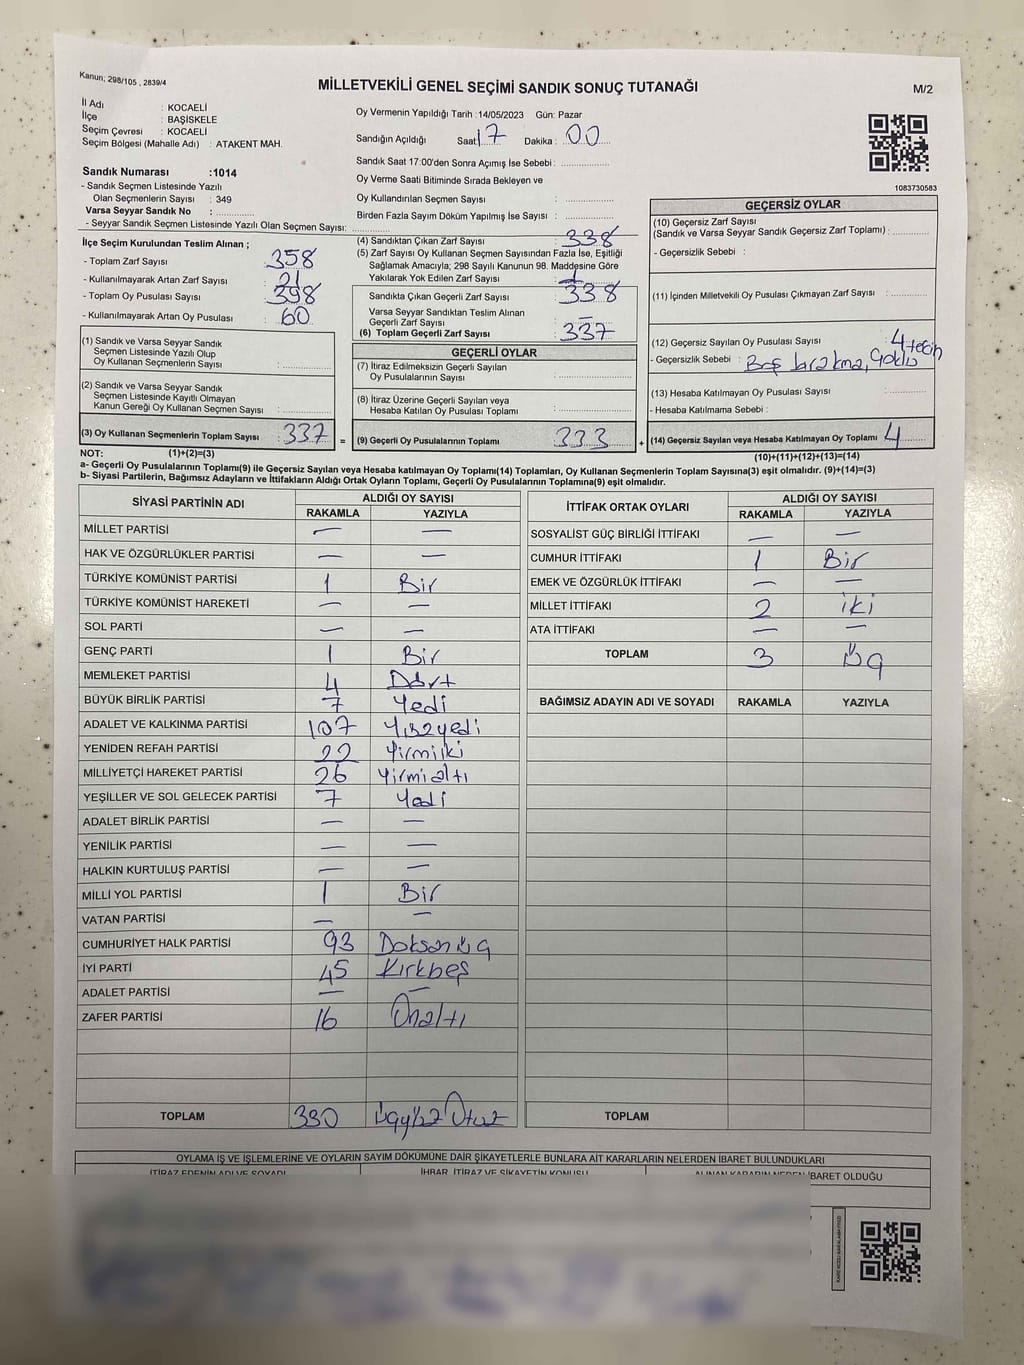 Kanun; 298/105 , 2839/4
MİLLETVEKİLİ GENEL SEÇİMİ SANDIK SONUÇ TUTANAĞI
M/2
İl Adı : KOCAELİ
İlçe : BAŞİSKELE
Seçim Çevresi : KOCAELİ
Seçim Bölgesi (Mahalle Adı) : ATAKENT MAH.
Sandık Numarası :1014
- Sandık Seçmen Listesinde Yazılı
Olan Seçmenlerin Sayısı : 349
Varsa Seyyar Sandık No :
- Seyyar Sandık Seçmen Listesinde Yazılı Olan Seçmen Sayısı:
Oy Vermenin Yapıldığı Tarih :14/05/2023 Gün: Pazar
Sandığın Açıldığı Saat: 17 Dakika : 00
Sandık Saat 17:00'den Sonra Açımış İse Sebebi :
Oy Verme Saati Bitiminde Sırada Bekleyen ve
Oy Kullandırılan Seçmen Sayısı :
Birden Fazla Sayım Döküm Yapılmış İse Sayısı :
1083730583
İlçe Seçim Kurulundan Teslim Alınan ;
- Toplam Zarf Sayısı : 358
- Kullanılmayarak Artan Zarf Sayısı : 21
- Toplam Oy Pusulası Sayısı : 398
- Kullanılmayarak Artan Oy Pusulası : 60
(1) Sandık ve Varsa Seyyar Sandık
Seçmen Listesinde Yazılı Olup
Oy Kullanan Seçmenlerin Sayısı :
(2) Sandık ve Varsa Seyyar Sandık
Seçmen Listesinde Kayıtlı Olmayan
Kanun Gereği Oy Kullanan Seçmen Sayısı :
(3) Oy Kullanan Seçmenlerin Toplam Sayısı : 337
(4) Sandıktan Çıkan Zarf Sayısı : 338
(5) Zarf Sayısı Oy Kullanan Seçmen Sayısından Fazla İse, Eşitliği
Sağlamak Amacıyla; 298 Sayılı Kanunun 98. Maddesine Göre
Yakılarak Yok Edilen Zarf Sayısı : 1
Sandıkta Çıkan Geçerli Zarf Sayısı : 338
Varsa Seyyar Sandıktan Teslim Alınan
Geçerli Zarf Sayısı : —
(6) Toplam Geçerli Zarf Sayısı : 337
GEÇERLİ OYLAR
(7) İtiraz Edilmeksizin Geçerli Sayılan
Oy Pusulalarının Sayısı :
(8) İtiraz Üzerine Geçerli Sayılan veya
Hesaba Katılan Oy Pusulası Toplamı :
= (9) Geçerli Oy Pusulalarının Toplamı : 333
GEÇERSİZ OYLAR
(10) Geçersiz Zarf Sayısı
(Sandık ve Varsa Seyyar Sandık Geçersiz Zarf Toplamı) :
- Geçersizlik Sebebi :
(11) İçinden Milletvekili Oy Pusulası Çıkmayan Zarf Sayısı :
(12) Geçersiz Sayılan Oy Pusulası Sayısı : 4
- Geçersizlik Sebebi : Boş bırakma,
(13) Hesaba Katılmayan Oy Pusulası Sayısı :
- Hesaba Katılmama Sebebi :
+ (14) Geçersiz Sayılan veya Hesaba Katılmayan Oy Toplamı : 4
NOT: (1)+(2)=(3)
(10)+(11)+(12)+(13)=(14)
a- Geçerli Oy Pusulalarının Toplamı(9) ile Geçersiz Sayılan veya Hesaba katılmayan Oy Toplamı(14) Toplamları, Oy Kullanan Seçmenlerin Toplam Sayısına(3) eşit olmalıdır. (9)+(14)=(3)
b- Siyasi Partilerin, Bağımsız Adayların ve İttifakların Aldığı Ortak Oyların Toplamı, Geçerli Oy Pusulalarının Toplamına(9) eşit olmalıdır.
SİYASİ PARTİNİN ADI ALDIĞI OY SAYISI
RAKAMLA YAZIYLA
MİLLET PARTİSİ — —
HAK VE ÖZGÜRLÜKLER PARTİSİ — —
TÜRKİYE KOMÜNİST PARTİSİ 1 Bir
TÜRKİYE KOMÜNİST HAREKETİ — —
SOL PARTİ — —
GENÇ PARTİ 1 Bir
MEMLEKET PARTİSİ 4 Dört
BÜYÜK BİRLİK PARTİSİ 7 Yedi
ADALET VE KALKINMA PARTİSİ 107 Yüzyedi
YENİDEN REFAH PARTİSİ 22 Yirmiiki
MİLLİYETÇİ HAREKET PARTİSİ 26 Yirmialtı
YEŞİLLER VE SOL GELECEK PARTİSİ 7 Yedi
ADALET BİRLİK PARTİSİ — —
YENİLİK PARTİSİ — —
HALKIN KURTULUŞ PARTİSİ — —
MİLLİ YOL PARTİSİ 1 Bir
VATAN PARTİSİ — —
CUMHURİYET HALK PARTİSİ 93 Doksanüç
İYİ PARTİ 45 Kırkbeş
ADALET PARTİSİ — —
ZAFER PARTİSİ 16 Onaltı
TOPLAM 330 Üçyüz Otuz
İTTİFAK ORTAK OYLARI ALDIĞI OY SAYISI
RAKAMLA YAZIYLA
SOSYALİST GÜÇ BİRLİĞİ İTTİFAKI — —
CUMHUR İTTİFAKI 1 Bir
EMEK VE ÖZGÜRLÜK İTTİFAKI — —
MİLLET İTTİFAKI 2 iki
ATA İTTİFAKI — —
TOPLAM 3 üç
BAĞIMSIZ ADAYIN ADI VE SOYADI RAKAMLA YAZIYLA
TOPLAM
OYLAMA İŞ VE İŞLEMLERİNE VE OYLARIN SAYIM DÖKÜMÜNE DAİR ŞİKAYETLERLE BUNLARA AİT KARARLARIN NELERDEN İBARET BULUNDUKLARI
İTİRAZ EDENİN ADI VE SOYADI İHBAR, İTİRAZ VE ŞİKAYETİN KONUSU ALINAN KARARIN NEDEN İBARET OLDUĞU